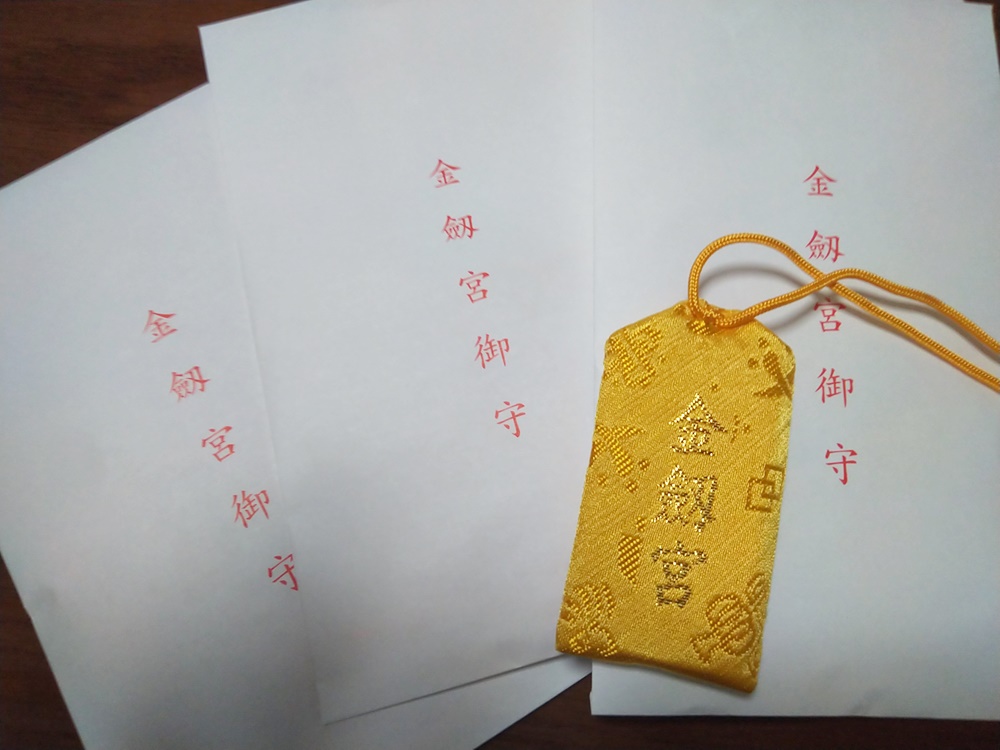 金劔宮御守
金劔宮御守
金劔宮御守
金劔宮